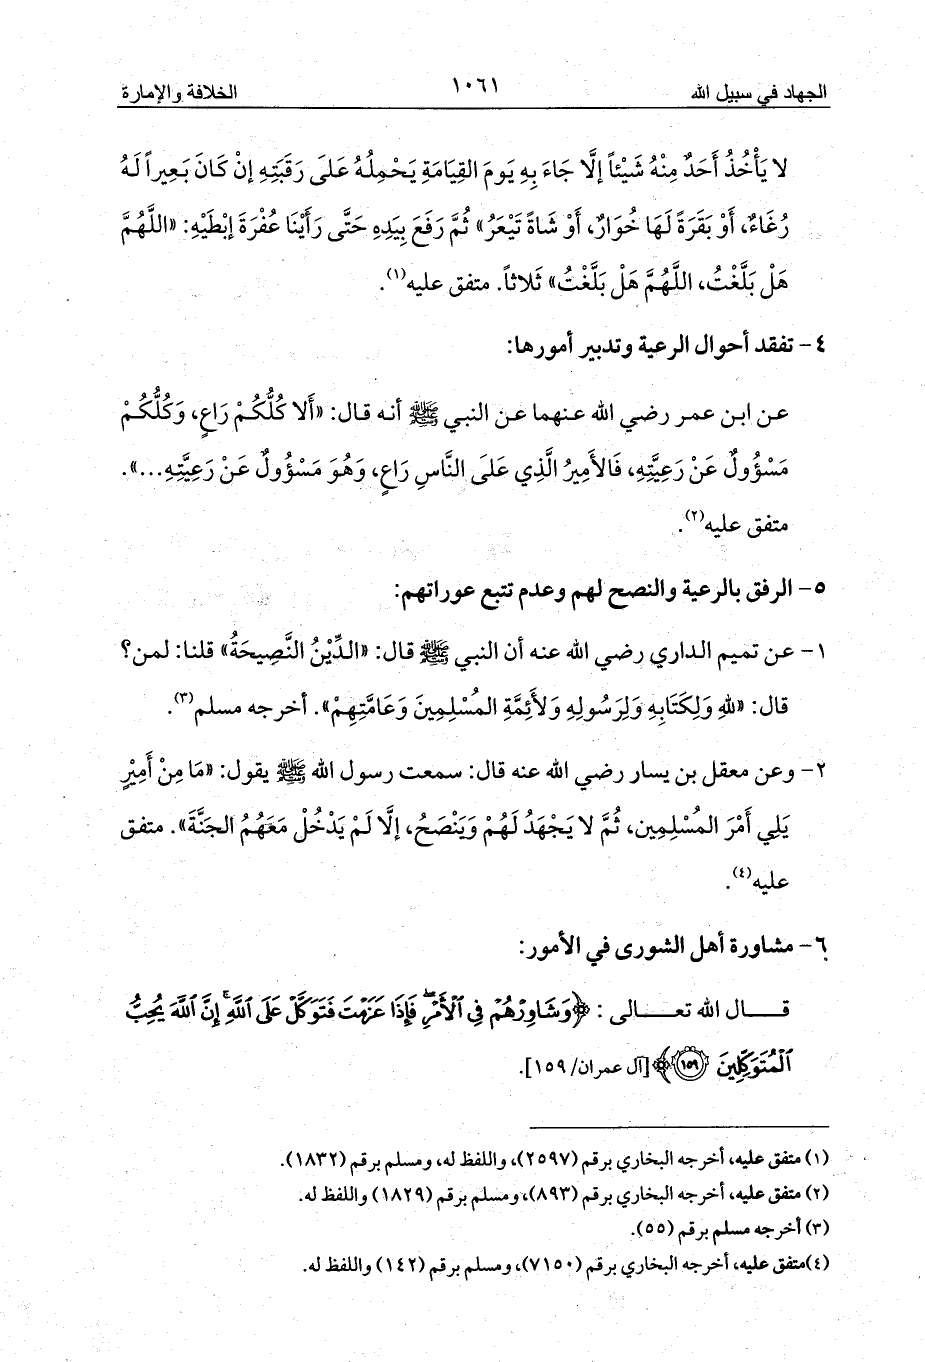 الجهاد في سبيل الله ١٠٦١ الخلافة والإمارة
لا يَأْخُذُ أَحَدٌ مِنْهُ شَيْئاً إلَّا جَاءَ بِهِ يَومَ القِيَامَةِ يَحْمِلُهُ عَلَى رَقَبَتِهِ إنْ كَانَ بَعِيراً لَهُ
رُغَاءٌ، أَوْ بَقَرَةً لَهَا خُوَارٌ، أَوْ شَاةً تَيْعَرُ» ثُمَّ رَفَعَ بِيَدِهِ حَتَّى رَأَيْنَا عُفْرَةَ إبْطَيْهِ: «اللَّهُمَّ
هَلْ بَلَّغْتُ، اللَّهُمَّ هَلْ بَلَّغْتُ» ثَلاثاً. متفق عليه(١).
٤- تفقد أحوال الرعية وتدبير أمورها:
عن ابن عمر رضي الله عنهما عن النبي ﷺ أنه قال: «أَلا كُلُّكُمْ رَاعٍ، وَكُلُّكُمْ
مَسْؤُولٌ عَنْ رَعِيَّتِهِ، فَالأَمِيرُ الَّذِي عَلَى النَّاسِ رَاعٍ، وَهُوَ مَسْؤُولٌ عَنْ رَعِيَّتِهِ...».
متفق عليه(٢).
٥- الرفق بالرعية والنصح لهم وعدم تتبع عوراتهم:
١- عن تميم الداري رضي الله عنه أن النبي ﷺ قال: «الدِّيْنُ النَّصِيحَةُ» قلنا: لمن؟
قال: «للهِ وَلِكَتَابِهِ وَلِرَسُولِهِ وَلأَئِمَّةِ المُسْلِمِينَ وَعَامَّتِهِمْ». أخرجه مسلم(٣).
٢- وعن معقل بن يسار رضي الله عنه قال: سمعت رسول الله ﷺ يقول: «مَا مِنْ أَمِيْرٍ
يَلِي أَمْرَ المُسْلِمِين، ثُمَّ لا يَجْهَدُ لَهُمْ وَيَنْصَحُ، إلَّا لَمْ يَدْخُلْ مَعَهُمُ الجَنَّةَ». متفق
عليه(٤).
٦- مشاورة أهل الشورى في الأمور:
قـــال الله تعـــالى : ﴿وَشَاوِرْهُمْ فِي ٱلْأَمْرِ ۖ فَإِذَا عَزَمْتَ فَتَوَكَّلْ عَلَى ٱللَّهِ ۚ إِنَّ ٱللَّهَ يُحِبُّ
ٱلْمُتَوَكِّلِينَ ۝١٥٩﴾ [آل عمران/ ١٥٩].
(١) متفق عليه، أخرجه البخاري برقم (٢٥٩٧)، واللفظ له، ومسلم برقم (١٨٣٢).
(٢) متفق عليه، أخرجه البخاري برقم (٨٩٣)، ومسلم برقم (١٨٢٩) واللفظ له.
(٣) أخرجه مسلم برقم (٥٥).
(٤)متفق عليه، أخرجه البخاري برقم (٧١٥٠)، ومسلم برقم (١٤٢) واللفظ له.